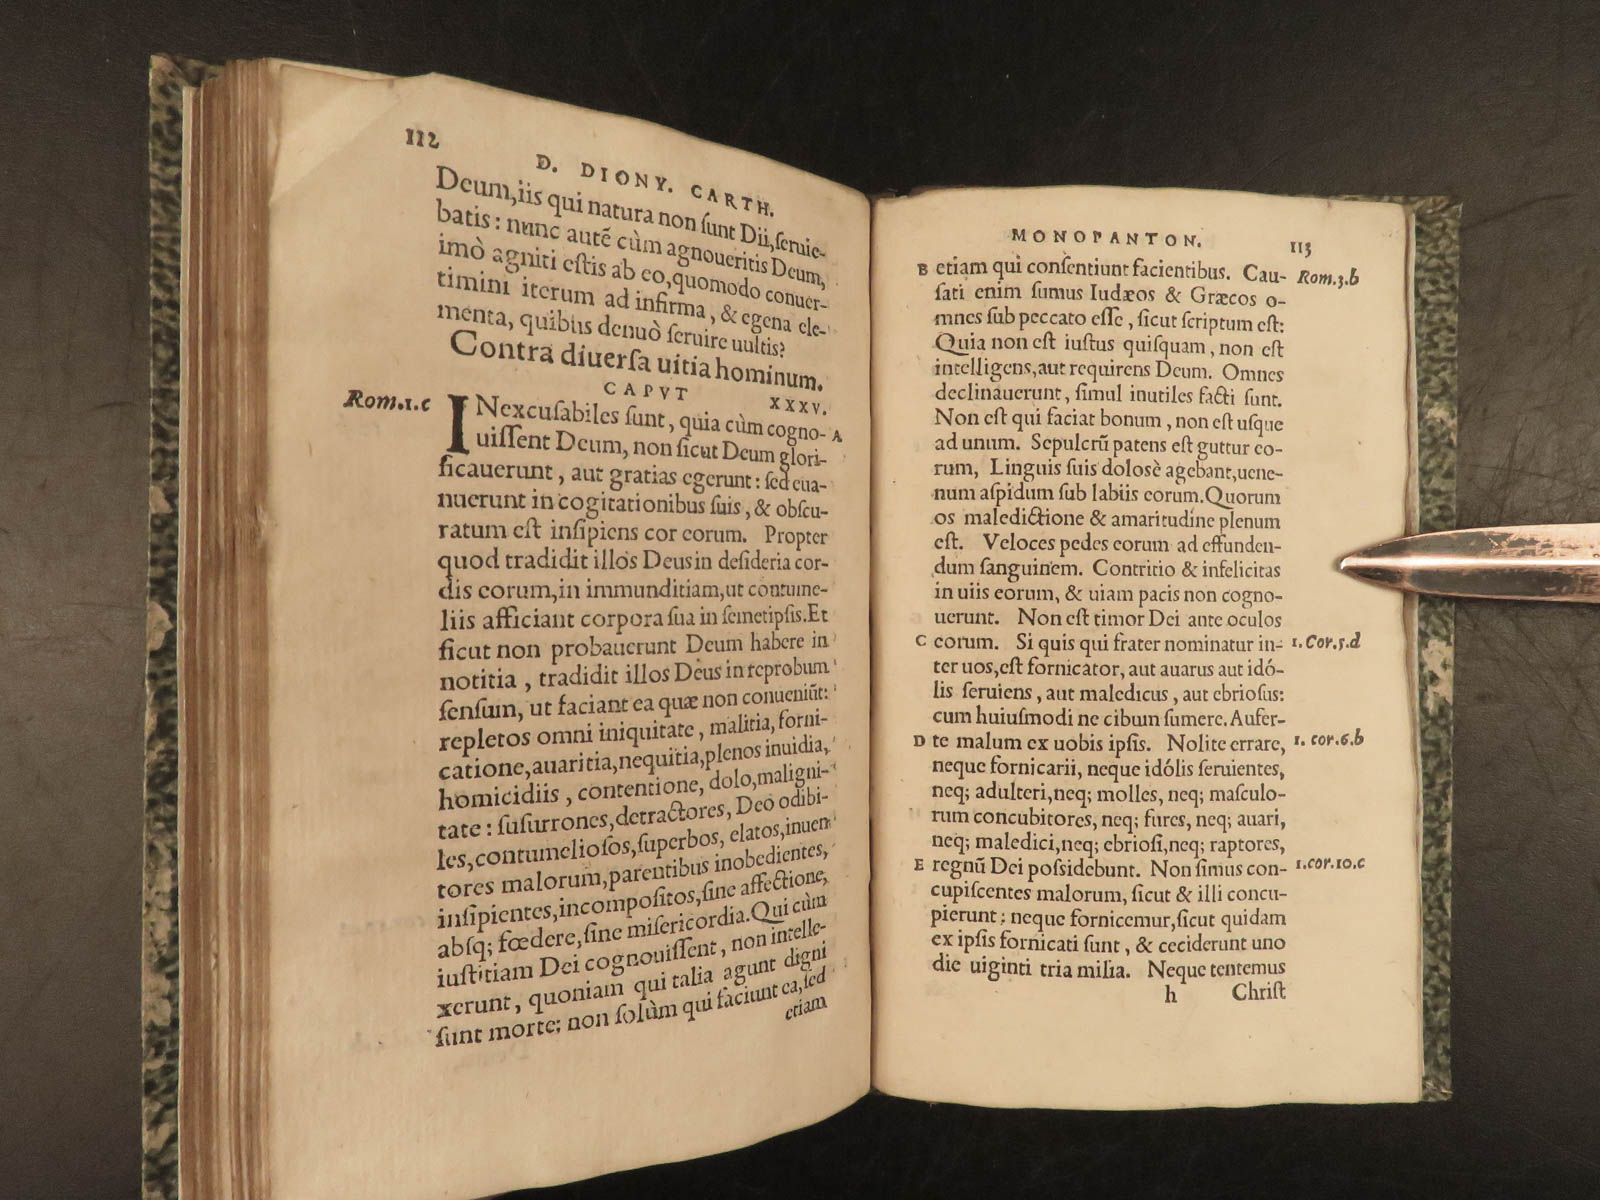 112
D. DIONY. CARTH.
Deum, iis qui natura non ſunt Dii, ſeruie-
batis: nunc autē cùm agnoueritis Deum,
imò agniti eſtis ab eo, quomodo conuer-
timini iterum ad infirma, & egena ele-
menta, quibus denuò ſeruire uultis?
Contra diuerſa uitia hominum.
CAPVT XXXV.
Rom.1.c INexcuſabiles ſunt, quia cùm cogno- A
uiſſent Deum, non ſicut Deum glori-
ficauerunt, aut gratias egerunt: ſed eua-
nuerunt in cogitationibus ſuis, & obſcu-
ratum eſt inſipiens cor eorum. Propter
quod tradidit illos Deus in deſideria cor-
dis eorum, in immunditiam, ut contume-
liis afficiant corpora ſua in ſemetipſis. Et
ſicut non probauerunt Deum habere in
notitia, tradidit illos Deus in reprobum
ſenſum, ut faciant ea quæ non conueniūt:
repletos omni iniquitate, malitia, forni-
catione, auaritia, nequitia, plenos inuidia,
homicidiis, contentione, dolo, maligni-
tate: ſuſurrones, detractores, Deo odibi-
les, contumelioſos, ſuperbos, elatos, inuen
tores malorum, parentibus inobedientes,
inſipientes, incompoſitos, ſine affectione,
abſq; fœdere, ſine miſericordia. Qui cùm
iuſtitiam Dei cognouiſſent, non intelle-
xerunt, quoniam qui talia agunt digni
ſunt morte: non ſolùm qui faciunt ea, ſed
etiam
MONOPANTON. 113
B etiam qui conſentiunt facientibus. Cau- Rom.3.b
ſati enim ſumus Iudæos & Græcos o-
mnes ſub peccato eſſe, ſicut ſcriptum eſt:
Quia non eſt iuſtus quiſquam, non eſt
intelligens, aut requirens Deum. Omnes
declinauerunt, ſimul inutiles facti ſunt.
Non eſt qui faciat bonum, non eſt uſque
ad unum. Sepulcrū patens eſt guttur eo-
rum, Linguis ſuis doloſè agebant, uene-
num aſpidum ſub labiis eorum. Quorum
os maledictione & amaritudine plenum
eſt. Veloces pedes eorum ad effunden-
dum ſanguinem. Contritio & infelicitas
in uiis eorum, & uiam pacis non cogno-
uerunt. Non eſt timor Dei ante oculos
C eorum. Si quis qui frater nominatur in- 1.Cor.5.d
ter uos, eſt fornicator, aut auarus aut idó-
lis ſeruiens, aut maledicus, aut ebrioſus:
cum huiuſmodi ne cibum ſumere. Aufer-
D te malum ex uobis ipſis. Nolite errare, 1. cor.6.b
neque fornicarii, neque idólis ſeruientes,
neq; adulteri, neq; molles, neq; maſculo-
rum concubitores, neq; fures, neq; auari,
neq; maledici, neq; ebrioſi, neq; raptores,
E regnū Dei poſſidebunt. Non ſimus con- 1.cor.10.c
cupiſcentes malorum, ſicut & illi concu-
pierunt: neque fornicemur, ſicut quidam
ex ipſis fornicati ſunt, & ceciderunt uno
die uiginti tria milia. Neque tentemus
h Chriſt